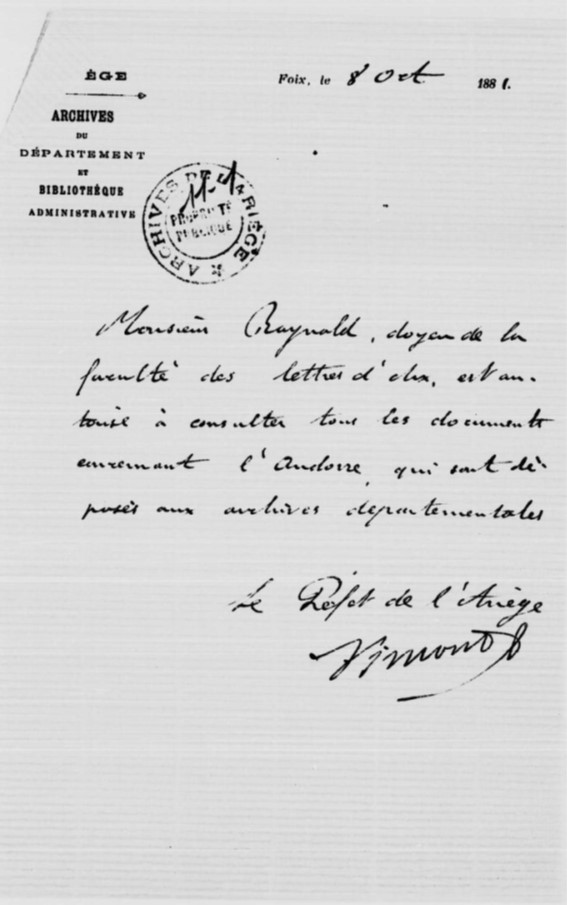 ÈGE
ARCHIVES
DU
DÉPARTEMENT
ET
BIBLIOTHÈQUE
ADMINISTRATIVE
Foix, le 8 Oct 1881.
ARCHIVES DE L'ARIÈGE
PROPRIÉTÉ
PUBLIQUE
Monsieur Raynald, doyen de la
faculté des lettres d'Aix, est au-
torisé à consulter tous les documents
concernant l'Andorre, qui sont dé-
posés aux archives départementales
Le Préfet de l'Ariège